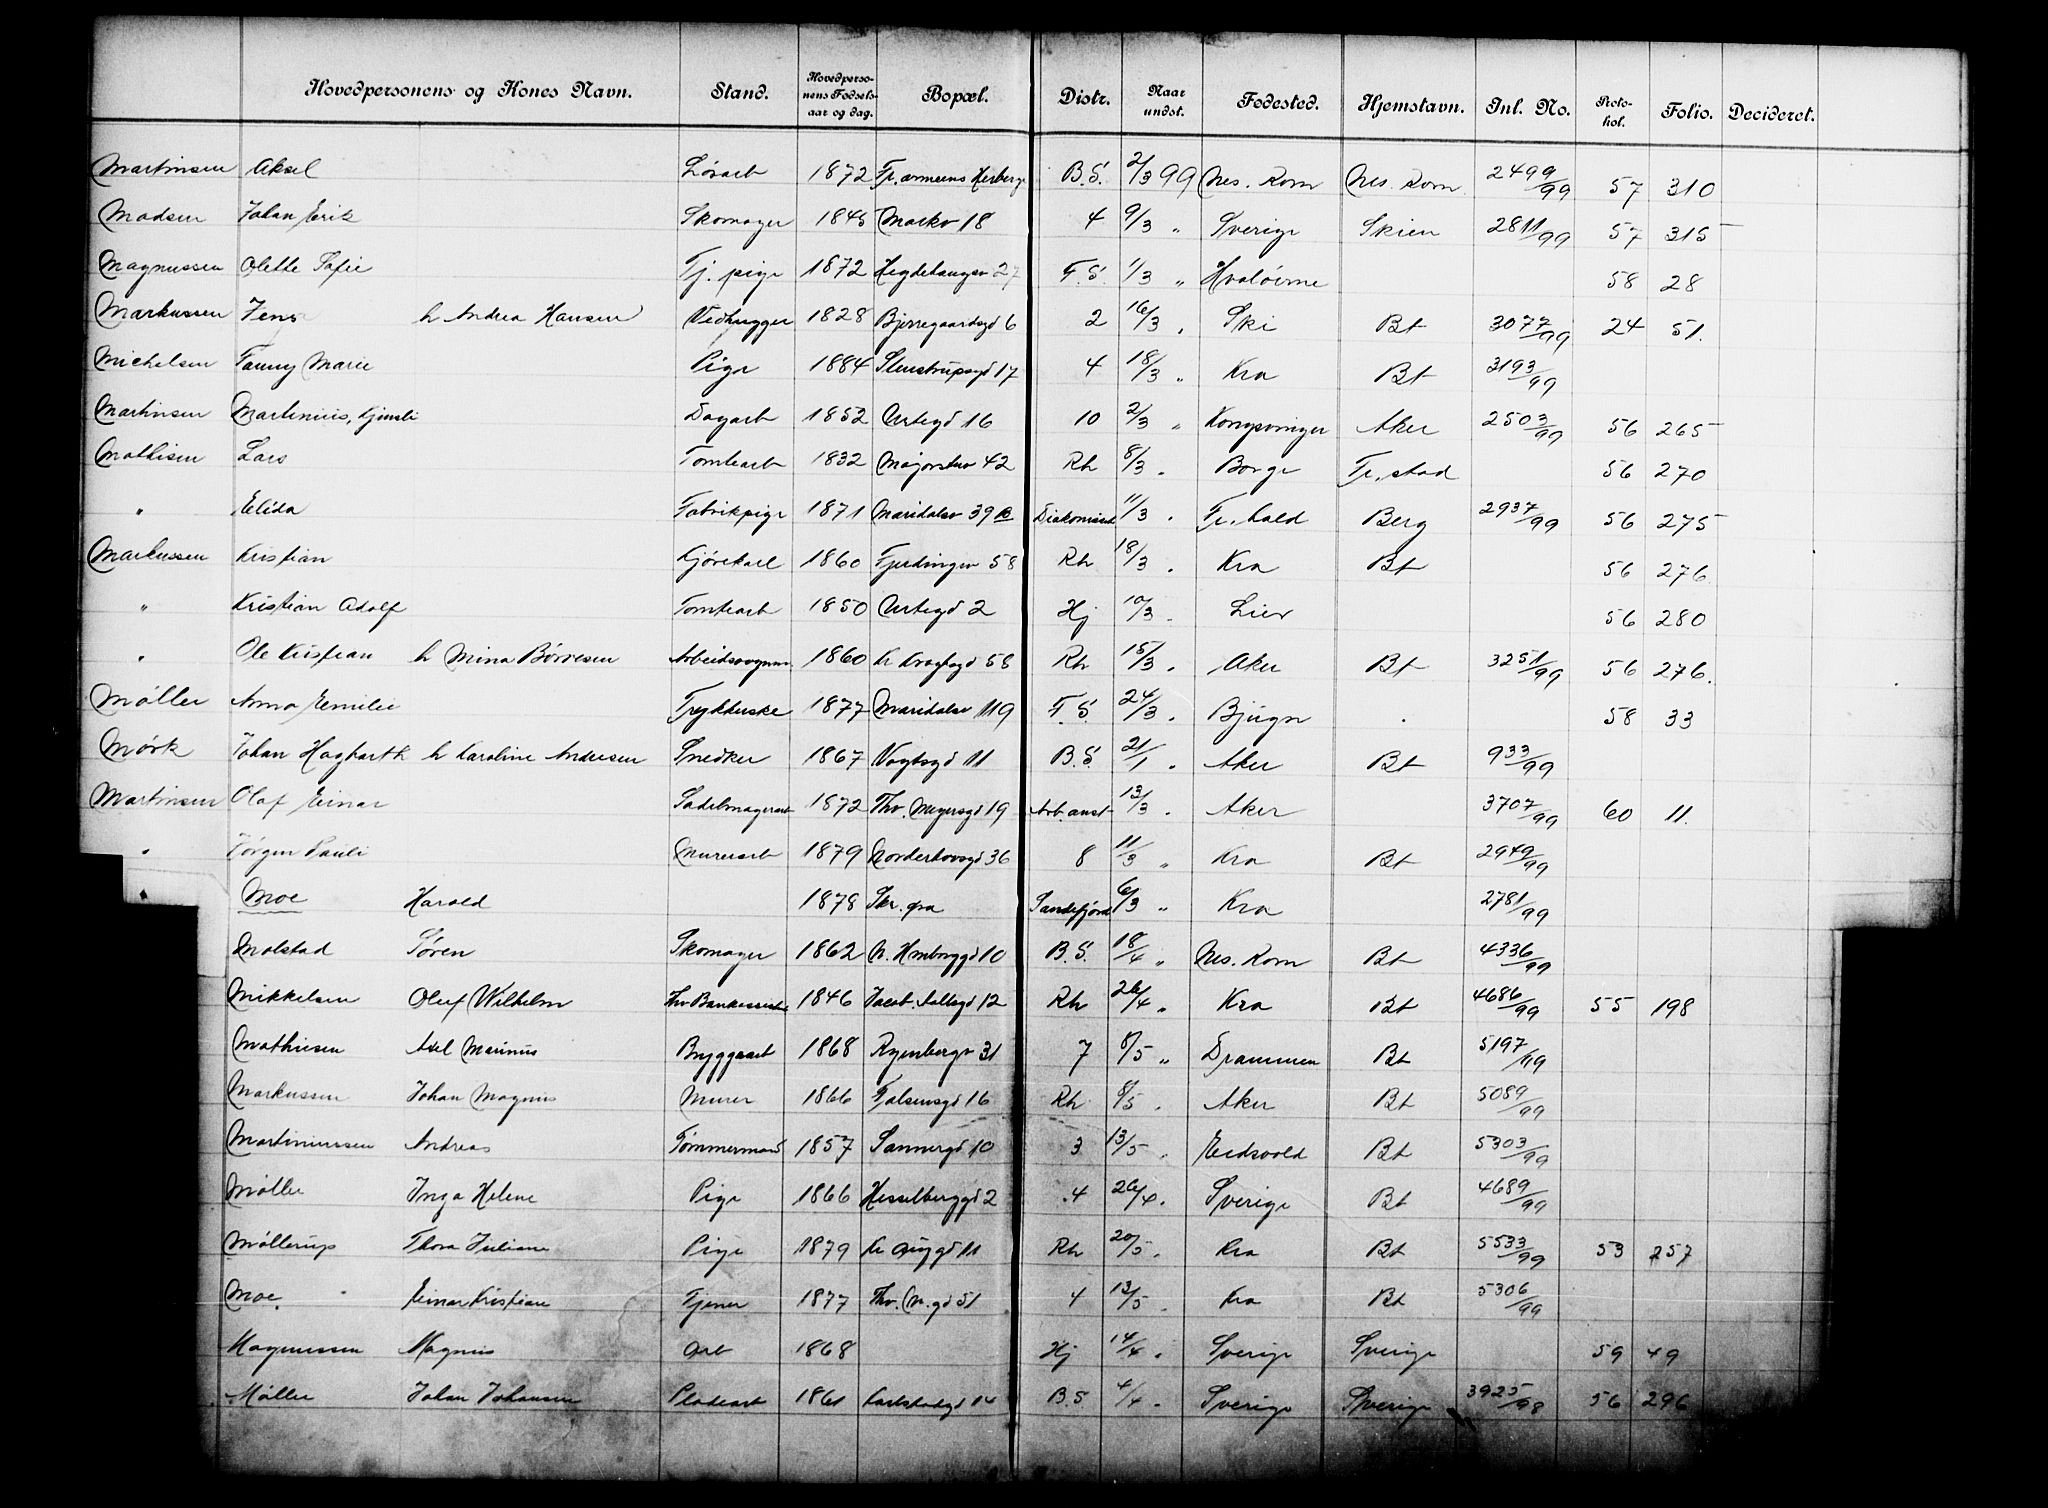 Hovedpersonens og Kones Navn. Stand. Hovedpersonens Fødselsaar og dag. Bopæl. Distr. Naar undst. Fødested. Hjemstavn. Inl. No. Protokol. Folio. Decideret.
Martinsen Aksel Løsarb 1872 B.S. 2/3 99 Nes. Rom Nes. Rom 2499/99 57 310
Madsen Johan Erik Skomager 1845 Markv 18 4 9/3 " Sverige Skien 2811/99 57 315
Magnussen Olette Sofie Tj. pige 1872 Hegdehaugsv 27 F.S. 1/3 " Hvaløerne 58 28
Markussen Jens h Andrea Hansen Vedhugger 1828 Bjerregaardsgd 6 2 16/3 " Ski Bt 3077/99 24 51.
Michelsen Fanny Marie Pige 1884 Stenstrupsgd 17 4 18/3 " Kra Bt 3193/99
Martinsen Martinius, Gjimli Dagarb 1852 Urtegd 16 10 2/3 " Kongsvinger Aker 2503/99 56 265
Mathisen Lars Tomtearb 1832 Majorstuv 42 Rh 8/3 " Borge Fr.stad 56 270
" Elida Fabrikpige 1871 Maridalsv 39 B 11/3 " Fr.hald Berg 2937/99 56 275
Markussen Kristian Kjørekarl 1860 Fjerdingen 58 Rh 18/3 " Kra Bt 56 276.
" Kristian Adolf Tomtearb 1850 Urtegd 2 Hj 10/3 " Lier 56 280
" Ole Kristian h Mina Børresen 1860 58 Rh 15/3 " Aker Bt 3251/99 56 276.
Møller Anna Emilie Trykkerske 1877 Maridalsv 119 F.S. 24/3 " Bjugn 58 33
Mørk Johan Hagbarth h Karoline Andresen Snedker 1867 Vogtsgd 11 B.S. 21/1 " Aker Bt 933/99
Martinsen Olaf Einar Sadelmagerarb 1872 Thv. Meyersgd 19 Arb.anst 13/3 " Aker 3707/99 60 11.
" Jørgen Pauli Murerarb 1879 Norderhovsgd 36 8 11/3 " Kra Bt 2949/99
Moe Harald 1878 Sandefjord 6/3 " Kra 2781/99
Molstad Søren Skomager 1862 N. Hmbrggd 10 B.S. 18/4 " Nes. Rom Bt 4336/99
Mikkelsen Oluf Wilhelm 1846 Jacob Aallsgd 12 Rh 26/4 " Kra Bt 4686/99 55 198
Mathiesen Axel Marinus Bryggearb 1868 Ryenbergv 31 7 8/5 " Drammen Bt 5197/99
Markussen Johan Magnus Murer 1866 Falsensgd 16 Rh 8/5 " Aker Bt 5089/99
Martiniussen Andreas Tømmermand 1857 Sannergd 10 3 13/5 " Eidsvold Bt 5303/99
Møller Inga Helene Pige 1866 Hesselberggd 2 4 26/4 " Sverige Bt 4689/99
Møllerup Thora Juliane Pige 1879 Kr Auggd 11 Rh 20/5 " Kra Bt 5533/99 53 257
Moe Einar Kristian Tjener 1877 Thv. M.gd 51 4 13/5 " Kra Bt 5306/99
Magnussen Magnus Arb 1868 Hj 14/4 " Sverige Sverige 59 49
Møller Johan Johansen Pladearb 1861 Karlstadgd 14 B.S 4/4 " Sverige Sverige 3925/98 56 296